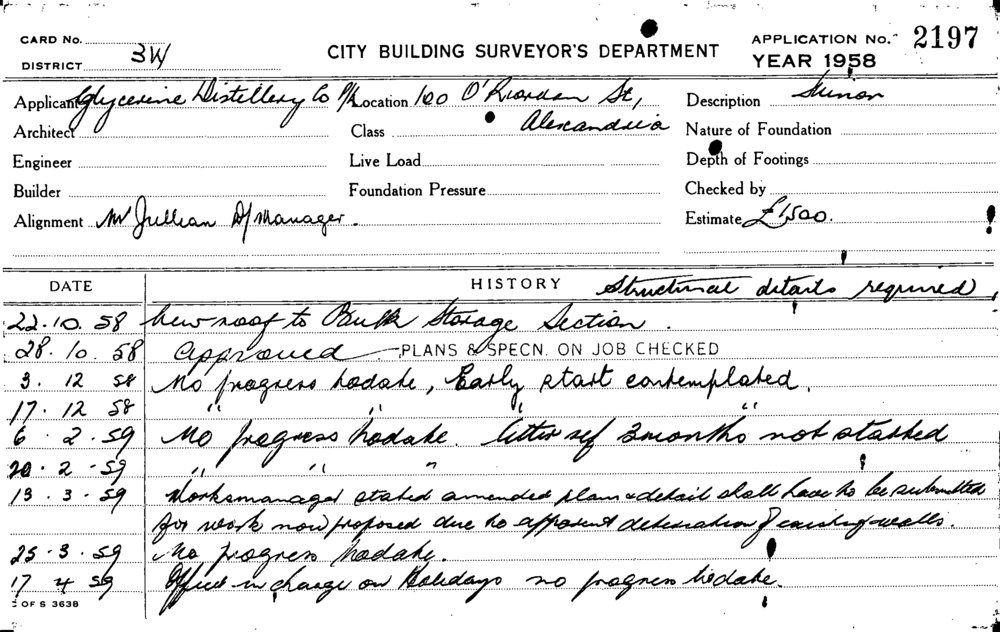 CARD No.
DISTRICT 3W
CITY BUILDING SURVEYOR'S DEPARTMENT
APPLICATION No. 2197
YEAR 1958
Applicant Glycerine Distillery Co P/L Location 100 O'Riordan St, Description Minor
Architect Class Alexandria Nature of Foundation
Engineer Live Load Depth of Footings
Builder Foundation Pressure Checked by
Alignment Mr Jullian D/Manager. Estimate £1,500.
DATE HISTORY Structural details required,
22.10.58 New roof to Bulk Storage Section.
28.10.58 Approved PLANS & SPECN. ON JOB CHECKED
3.12 58 No progress todate, Early start contemplated.
17.12 58 " " "
6.2.59 No progress todate. letter ref 3 months not started
20.2.59 " " "
13.3.59 Worksmanager stated amended plan & detail shall have to be submitted
for work now proposed due to apparent of existing walls.
25.3.59 No progress todate.
17 4 59 in charge on Holidays no progress todate.
OF S 3638